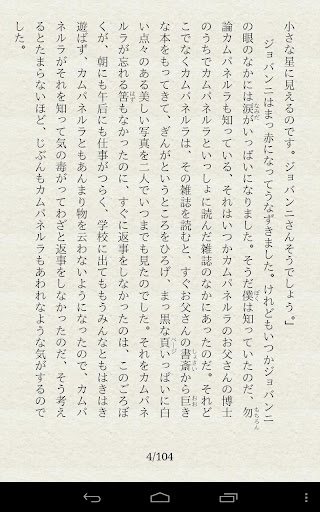 小さな星に見えるのです。ジョバンニさんそうでしょう。」
　ジョバンニはまっ赤になってうなずきました。けれどもいつかジョバンニ
の眼のなかには涙がいっぱいになりました。そうだ僕は知っていたのだ、勿
論カムパネルラも知っている、それはいつかカムパネルラのお父さんの博士
のうちでカムパネルラといっしょに読んだ雑誌のなかにあったのだ。それど
こでなくカムパネルラは、その雑誌を読むと、すぐお父さんの書斎から巨き
な本をもってきて、ぎんがというところをひろげ、まっ黒な頁いっぱいに白
い点々のある美しい写真を二人でいつまでも見たのでした。それをカムパネ
ルラが忘れる筈もなかったのに、すぐに返事をしなかったのは、このごろぼ
くが、朝にも午后にも仕事がつらく、学校に出てももうみんなともはきはき
遊ばず、カムパネルラともあんまり物を云わないようになったので、カムパ
ネルラがそれを知って気の毒がってわざと返事をしなかったのだ、そう考え
るとたまらないほど、じぶんもカムパネルラもあわれなような気がするので
した。
4/104